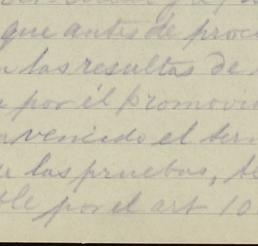 que antes de proce
las resultas de
por él promovid
vencido el term
las pruebas, se
ble por el art 10